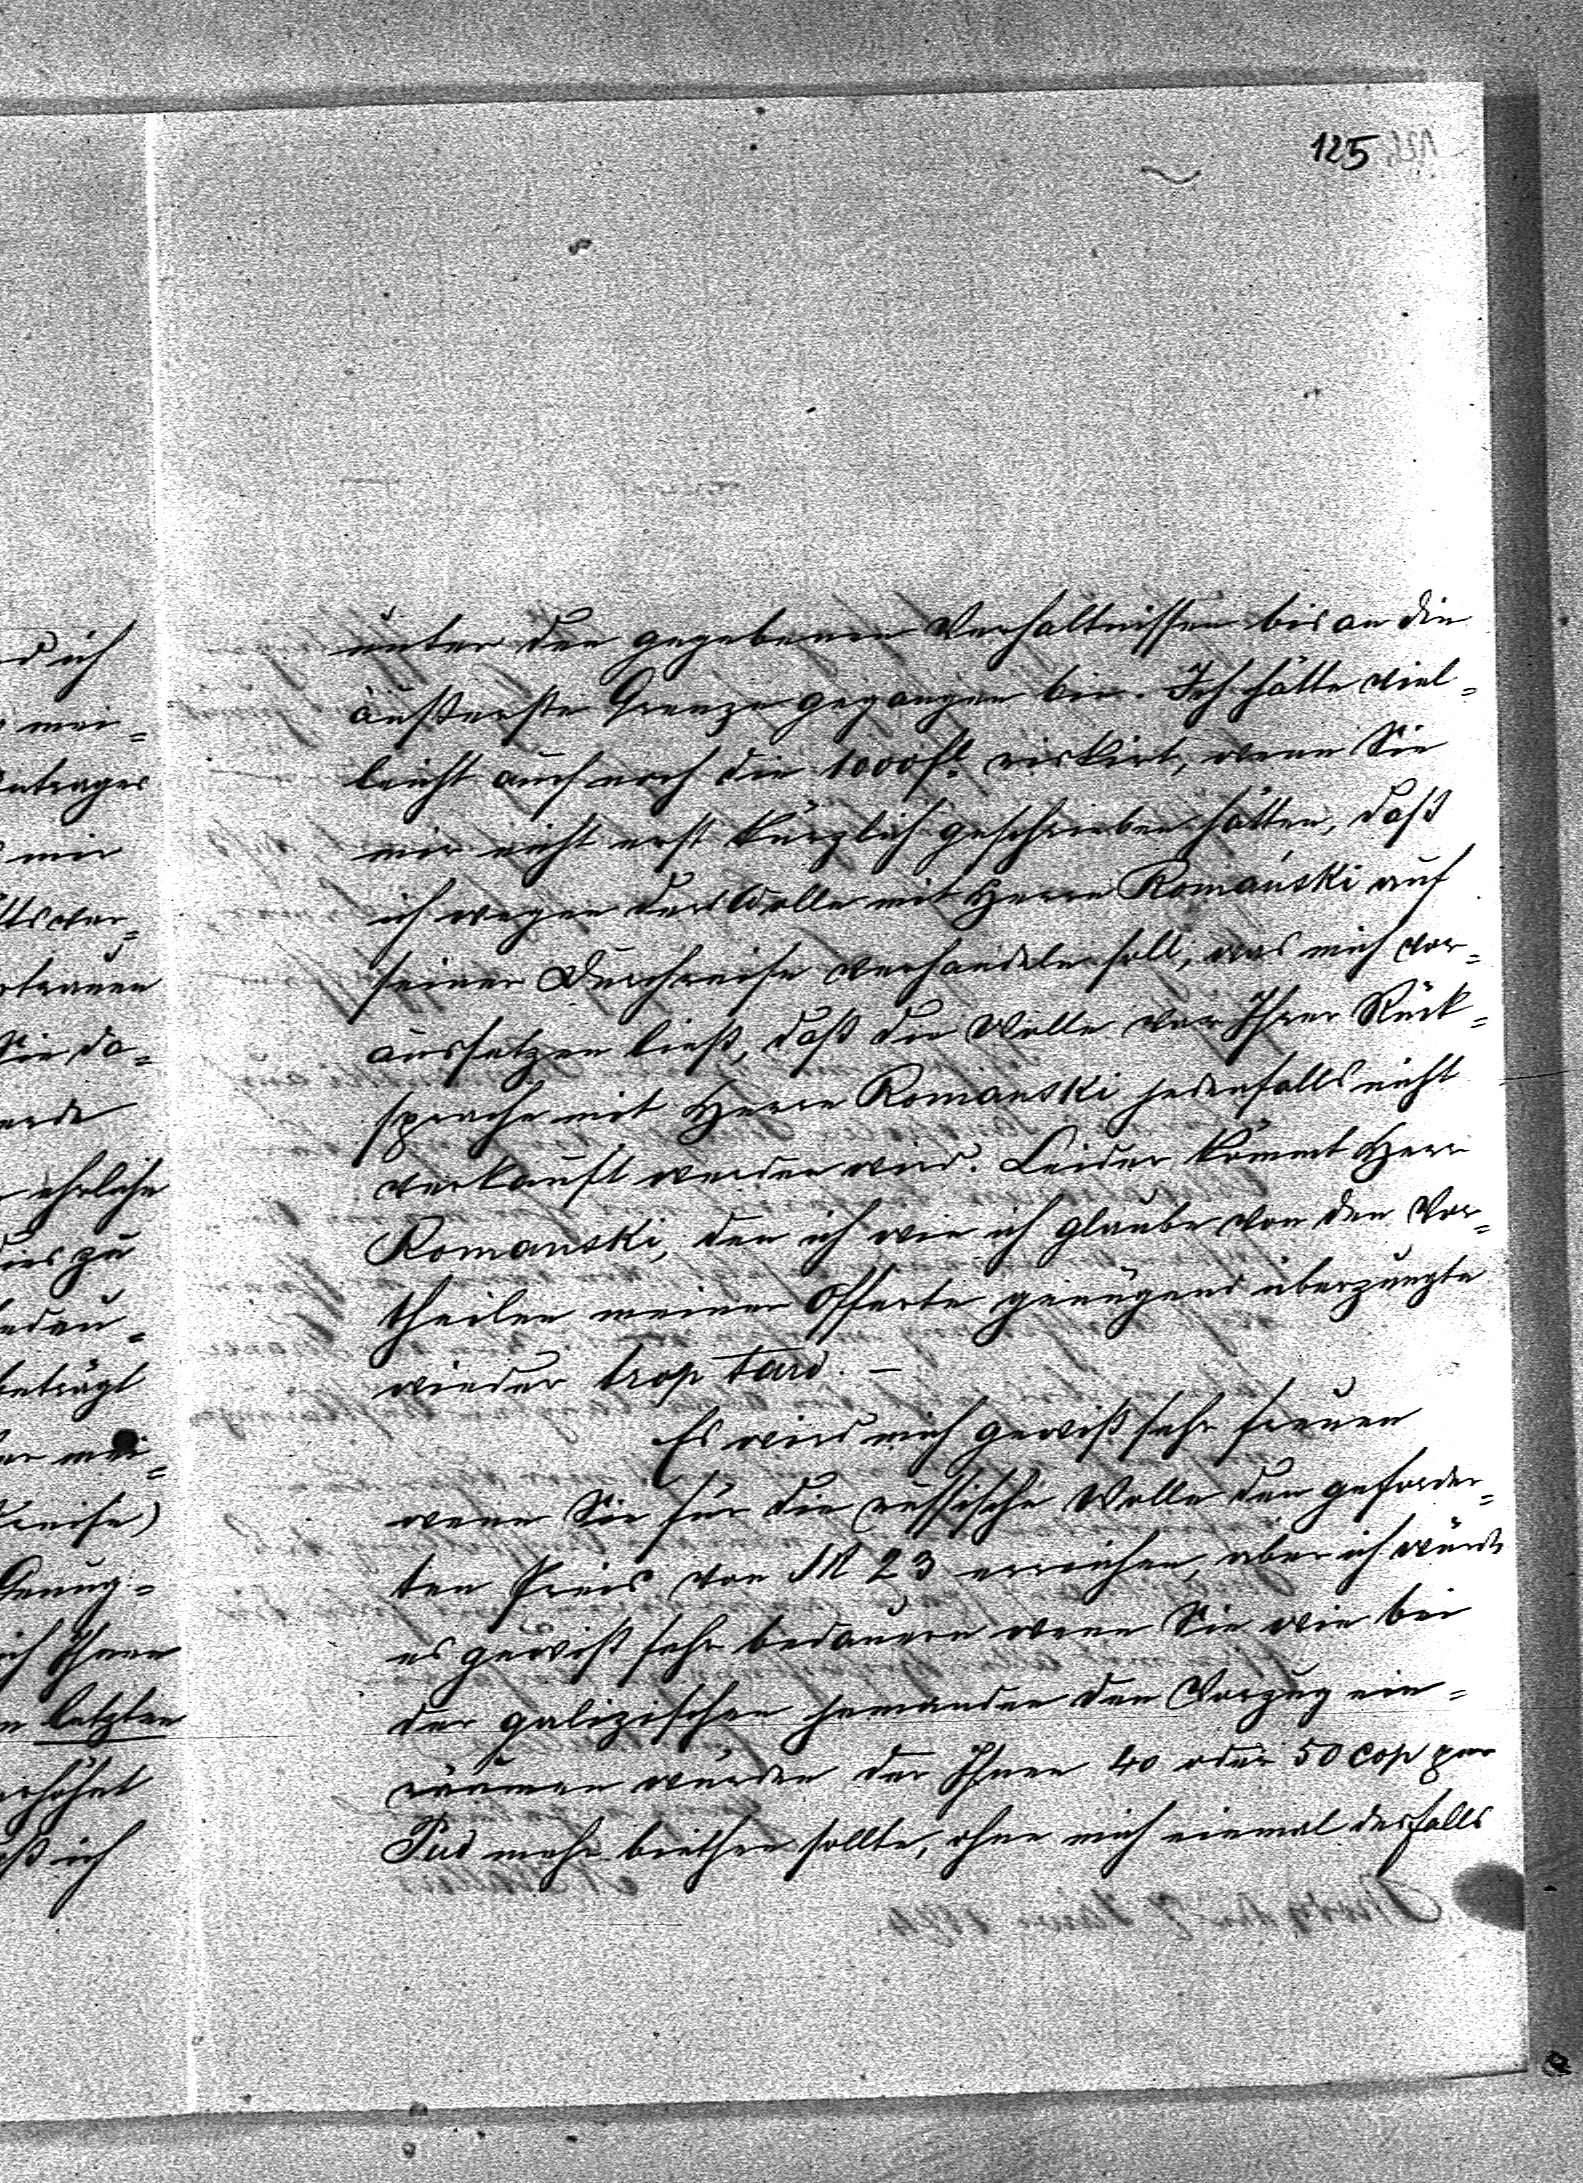 125
unter den gegebenen Verhältnissen bis an die
äußerste Grenze gegangen bin. Ich hätte viel=
leicht auch noch die 1000 fl. riskirt, wenn Sie
mir nicht erst kürzlich geschrieben hätten, daß
ich wegen der Wolle mit Herrn Romański auf
seiner Durchreise verhandeln soll, was mich vor=
aussetzen ließ, daß die Wolle vor Ihrer Rück=
sprache mit Herrn Romański jedenfalls nicht
verkauft werden wird. Leider kömmt Herr
Romanski, den ich wie ich glaube von den Vor=
theilen meiner Offerte genügend überzeugte
wieder trop tard. –
Es wird mich gewiß sehr freuen
wenn Sie für die russische Wolle den geforder=
ten Preis von M 23 erreichen, aber ich würde
es gewiß sehr bedauern wenn Sie wie bei
der galizischen jemanden den Vorzug ein=
räumen würden der Ihnen 40 oder 50 cop per
Pud mehr biethen sollte, ohne mich einmal desfalls
d ich
mei=
Antrages
mir
ttsver=
rtrauen
Sie da=
erde
ehrliche
dies zu
edau=
beträgt
er mei=
reise)
Genug=
ich Ihnen
n letzten
erhöht
ß ich